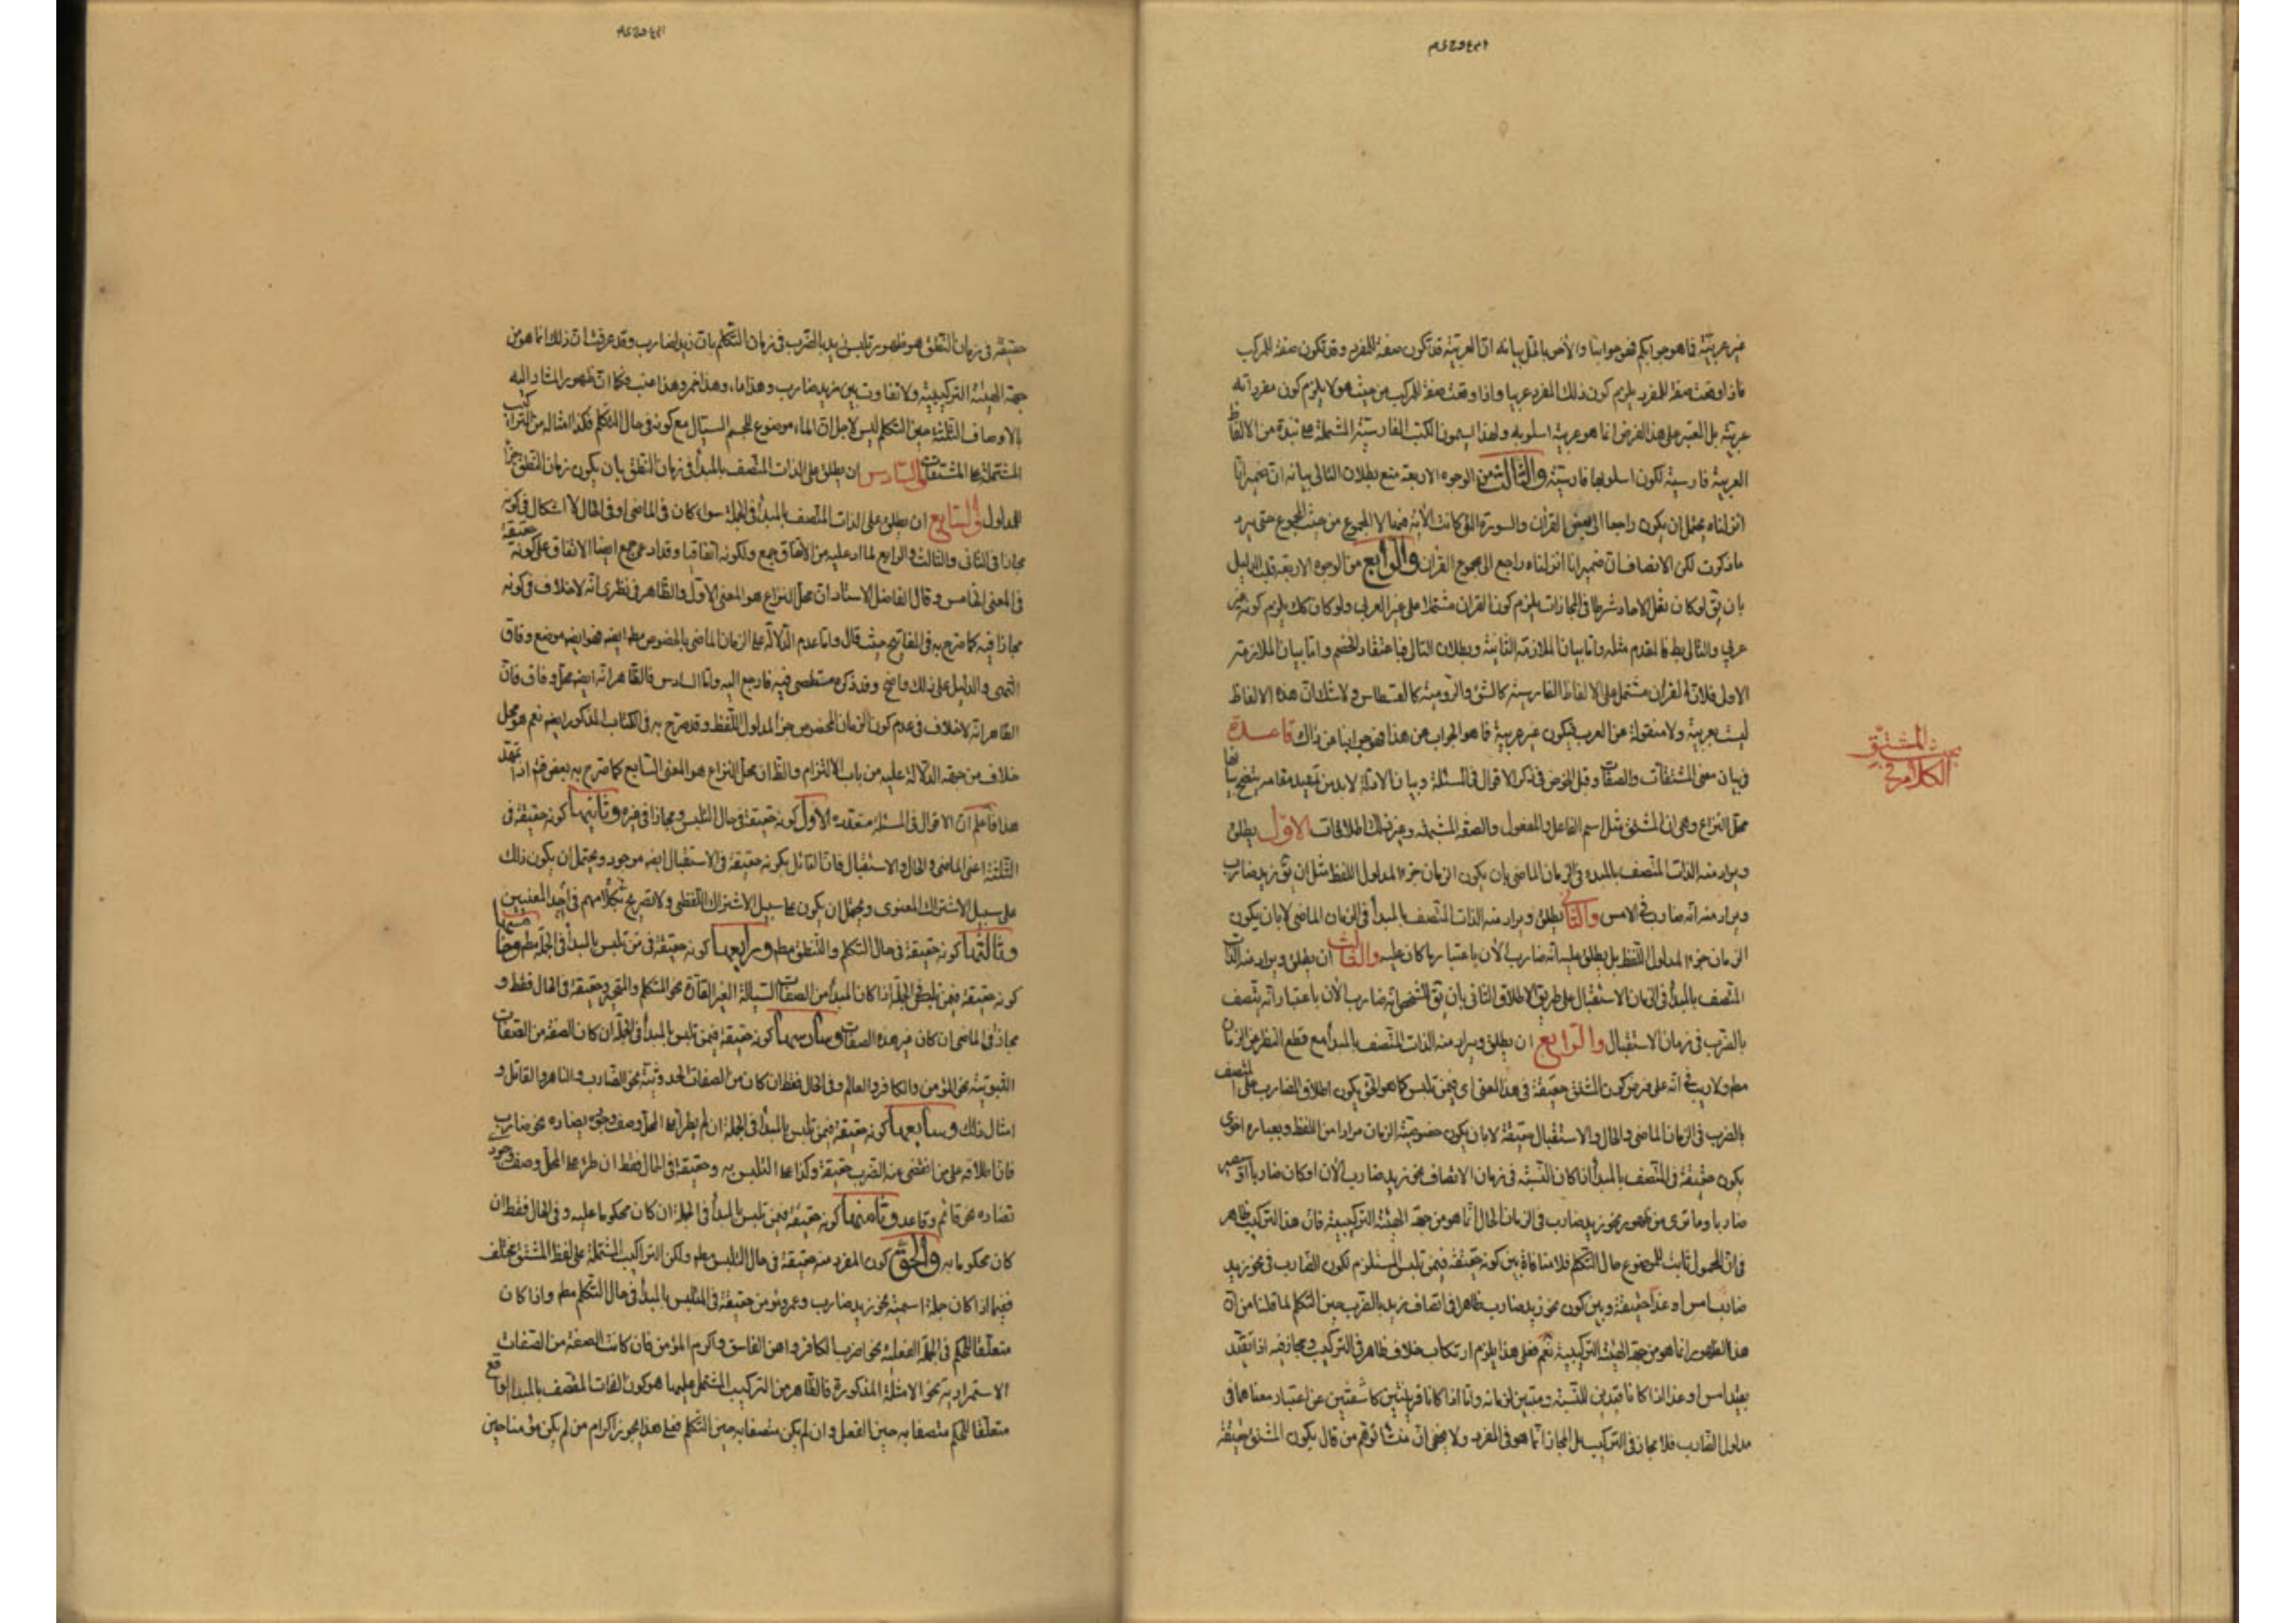 غير عربيّة فما هو جوابكم فهو جوابنا والاخص بالمثل بيانه انّ العربيّة قد تكون صفة للمفرد وقد تكون صفة للمركب
فاذا وقعت صفة للمفرد يلزم كون ذلك المفرد عربيا واذا وقعت صفة للمركب من حيث هو لا يلزم كون مفرداته
عربيّة بل المعتبر على هذا الفرض انما هو عربيّة اسلوبه ولهذا يسمون الكتب الفارسيّة المشتملة على نبذة من الالفاظ
العربيّة فارسيّة لكون اسلوبها فارسيّة والثالث من الوجوه الاربعة منع بطلان التالى بيانه ان ضمير انّا
انزلناه يحتمل ان يكون راجعا الى بعض القرآن والسورة التى كانت الآية فيها لا المجموع من حيث المجموع حتى يرد
ما ذكرت لكن الانصاف ان ضمير انا انزلناه راجع الى مجموع القرآن والرابع من الوجوه الاربعة قلب الدليل
بان يق لو كان نقل الاحاد شرطا فى المجازات يلزم كون القران مشتملا على غير العربى ولو كان كك يلزم كونه غير
عربي والتالى بط فالمقدم مثله وامّا بيان الملازمة الثانية وبطلان التالى فباعتقاد الخصم وامّا بيان الملازمة
الاولى فلانّ القرآن مشتمل على الالفاظ الفارسيّة والروميّة كالقسطاس ولا شك ان هذه الالفاظ
ليست بعربية ولا منقولة عن العرب فيكون غير عربية فما هو الجواب عن هذا فهو جوابنا عن ذاك قاعدة
فى بيان معنى المشتقات والصفات وقبل الخوض فى ذكر الاقوال فى المسئلة وبيان الادلة لا بد من تمهيد مقامه يتضح بها
بحث المشتق
الكلام فى
محل النزاع وهى ان المشتق مثل اسم الفاعل والمفعول والصفة المشبهة وغير ذلك اطلاقات الاوّل يطلق
ويراد منه الذات المتصف بالمبدء فى الزمان الماضى بان يكون الزمان جزءا لمدلول اللفظ مثل ان يق زيد ضارب
ويراد منه انه ضارب فى الامس والثانى يطلق ويراد منه الذات المتصف بالمبدأ فى الزمان الماضى لا بان يكون
الزمان جزءا لمدلول اللفظ بل يطلق عليه انه ضارب الآن باعتبار ما كان عليه والثالث ان يطلق ويراد منه الذات
المتصف بالمبدأ فى الزمان الاستقبال على طريق الاطلاق الثانى بان يق لشخص انه ضارب الآن باعتبار انه يتصف
بالضرب فى زمان الاستقبال والرابع ان يطلق ويراد منه الذات المتصف بالمبدأ مع قطع النظر عن الزمان
مط ولا ريب فى انّه على فرض كون المشتق حقيقة فى هذا المعنى اى فيمن تلبس كما هو الحق يكون اطلاق الضارب على المتصف
بالضرب فى الزمان الماضى والحال والاستقبال حقيقة لا بان يكون خصوصيّة الزمان مرادا من اللفظ وبعبارة اخرى
يكون حقيقة فى المتصف بالمبدأ ان كان النسبة فى زمان الاتصاف نحو زيد ضارب الآن او كان ضاربا او سيصير
ضاربا وما ترى من ظهور نحو زيد ضارب فى الزمان الحال انّما هو من جهة الهيئة التركيبية فانّ هذا التركيب ظاهر
فى ان المحمول ثابت للموضوع حال التكلم فلا منافاة بين كونه حقيقة فيمن تلبس المستلزم لكون الضارب فى نحو زيد
ضارب امس او غدا حقيقة وبين كون نحو زيد ضارب ظاهرا فى اتصاف زيد بالضرب حين التكلم لما قلنا من انّ
هذا الظهور انما هو من جهة الهيئة التركيبية نعم فعلى هذا يلزم ارتكاب خلاف ظاهر فى التركيب ومجاز فيه اذا تقيّد
بقيد امس او غدا اذا كانا قيدين للنسبة ومبينين لزمانه وامّا اذا كانا قرينتين كاشفتين عن اعتبار معناهما فى
مدلول الضارب فلا مجاز فى التركيب بل المجاز انّما هو فى المفرد ولا يخفى انّ منشأ توهم من قال بكون المشتق حقيقة
حقيقة فى زمان النطق هو ظهور تلبس زيد بالضرب فى زمان التكلم بان زيد ضارب وقد عرفت ان ذلك انما هو من
جهة الهيئة التركيبيّة ولا تفاوت بين زيد ضارب وهذا ماء وهذا خمر وهذا عنب فكما انّ ظهور المشار اليه
بالاوصاف الثلثة حين التكلم ليس لاجل انّ الماء موضوع للجسم السيال مع كونه فى حال التكلم فكذا امثاله من التراكيب
المشتملة على المشتقات والسادس ان يطلق على الذات المتصف بالمبدأ فى زمان النطق بان يكون زمان النطق جزءا
للمدلول والسابع ان يطلق على الذات المتصف بالمبدأ فى الجملة سواء كان فى الماضى او فى الحال لا اشكال فى كونه
مجازا فى الثانى والثالث والرابع لما ادعى عليه من الاتفاق جمع ولكونه اتفاقيا وقد ادعى جمع ايضا الاتفاق على كونه حقيقة
فى المعنى الخامس وقال الفاضل الاستاد ان محل النزاع هو المعنى الاول والظاهر فى نظرى انّه لا خلاف فى كونه
مجازا فيه كما صرح به فى المفاتيح حيث قال وامّا عدم الدلالة على الزمان الماضى بالخصوص مط ايضا فهو ايضا موضع وفاق
انتهى والدليل على ذلك واضح وقد ذكره مستقصى فيه فارجع اليه وامّا السادس فالظاهر انه ايضا محل وفاق فانّ
الظاهر انّه لا خلاف فى عدم كون الزمان المخصوص جزءا لمدلول اللفظ وقد صرح به فى الكتاب المذكور ايضا نعم هو محل
خلاف من جهة الدلالة عليه من باب الالتزام والظ ان محل النزاع هو المعنى السابع كما صرح به بعض فى اذا تمهّد
هذا فاعلم انّ الاقوال فى المسئلة متعددة الاول كونه حقيقة فى حال التلبس ومجازا فى غيره وثانيها كونه حقيقة فى
الثلثة اعنى الماضى والحال والاستقبال فانّ القائل بكونه حقيقة فى الاستقبال ايضا موجود ويحتمل ان يكون ذلك
على سبيل الاشتراك المعنوى ويحتمل ان يكون على سبيل الاشتراك اللفظى ولا تصريح بكلامهم فى احد المعنيين
وثالثها كونه حقيقة فى حال التكلم والنطق مط ورابعها كونه حقيقة فى من تلبس بالمبدأ فى الجملة مط وخامسها
كونه حقيقة فيمن تلبس فى الجملة اذا كان المبدأ من الصفات السيالة الغير القارة نحو المتكلم والمتحرك وحقيقة فى الحال فقط و
مجازا فى الماضى ان كان غير هذه الصفات وسادسها كونه حقيقة فيمن تلبس بالمبدأ فى الجملة ان كان الصفة من الصفات
الثبوتيّة نحو المؤمن والكافر والعالم وفى الحال فقط ان كان من الصفات الحدوثيّة نحو الضارب والناصر والقاتل و
امثال ذلك وسابعها كونه حقيقة فيمن تلبس بالمبدأ فى الجملة ان لم يطرأ على المحل وصف وجودى يضاده نحو ضارب
فانّ اطلاقه على من انقضى عنه الضرب حقيقة وكذا على التلبس به وحقيقة فى الحال فقط ان طرء على المحل وصف وجودى
تضاده نحو قائم وقاعد وثامنها كونه حقيقة فيمن تلبس بالمبدأ فى الجملة ان كان محكوما عليه وفى الحال فقط ان
كان محكوما به والحق كون المفرد منه حقيقة فى حال التلبس مط ولكن التراكيب المشتملة على لفظ المشتق مختلف
ففيما اذا كان جملة اسمية نحو زيد ضارب وعمرو مؤمن حقيقة فى المتلبس بالمبدأ فى حال التكلم مط واذا كان
متعلقا للحكم فى الجملة الفعلية نحو اضرب الكافر واهن الفاسق واكرم المؤمن فان كانت الصفة من الصفات
الاستمرارية نحو الامثلة المذكورة فالظاهر من التركيب المشتمل عليها هو كون الذات المتصف بالمبدأ الواقع
متعلقا للحكم متصفا به حين الفعل وان لم يكن متصفا به حين التكلم فعلى هذا يجوز اكرام من لم يكن مؤمنا حين